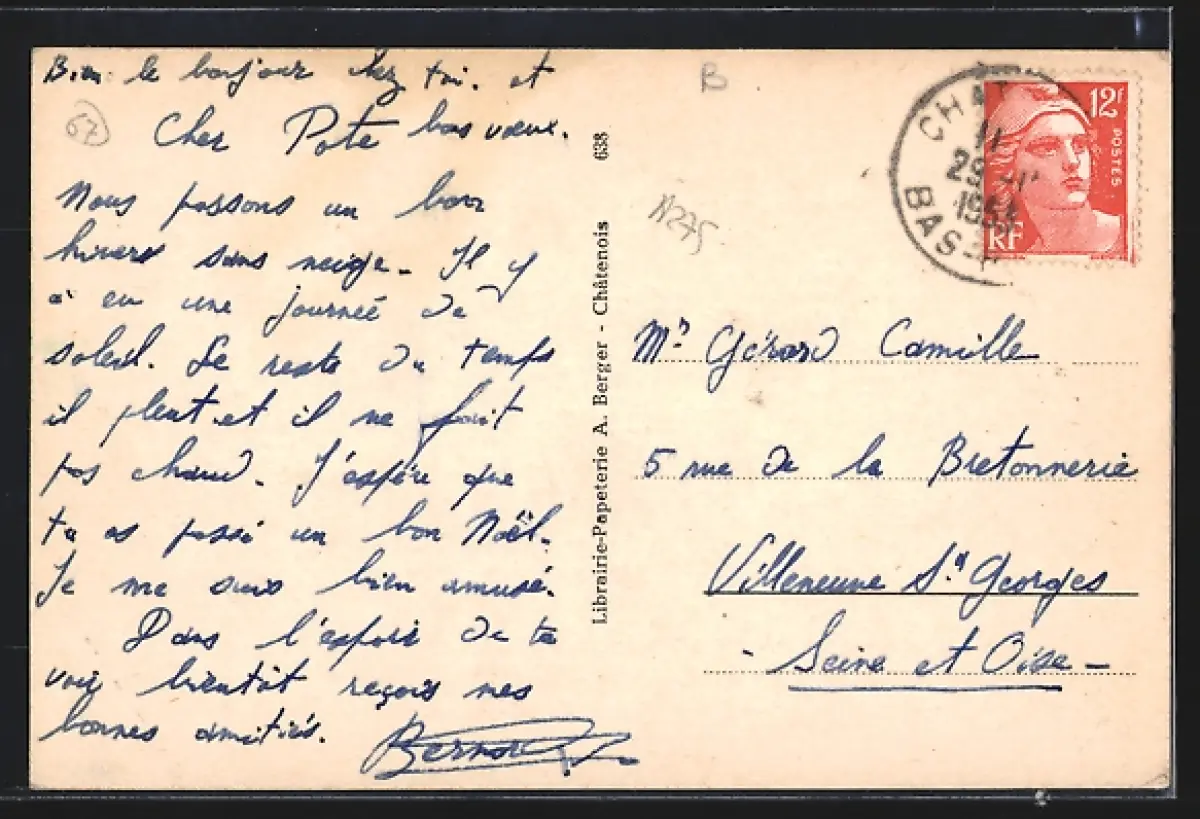 Bien le bonjour chez toi. et
bons vœux.
Cher Pote
Nous passons un bon
hivers sans neige. Il y
a eu une journeé de
soleil. Le reste du temps
il pleut et il ne fait
pas chaud. J'espère que
tu as passé un bon Noël.
Je me suis bien amusé.
Dans l'espoir de te
voir bientôt reçois mes
bonnes amitiés.
67
B
N275
Librairie-Papeterie A. Berger - Châtenois 638
CHAT
11
29
BAS-R
12F
POSTES
RF
Mr Gérard Camille
5 rue de la Bretonnerie
Villeneuve St Georges
- Seine et Oise -